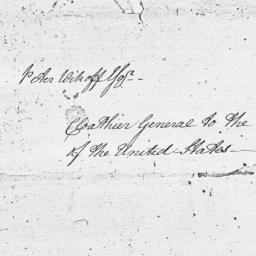 Peter Wikoff Esqr. -
Cloathier General to the
of the United States —